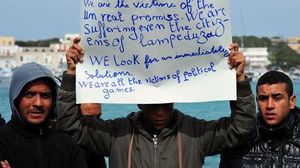 We are the victims of the
unreal promise. We are
suffering even the citiz-
ens of lampeduza.
We look for an immediately
solutions.
We are all the victims of political
games.